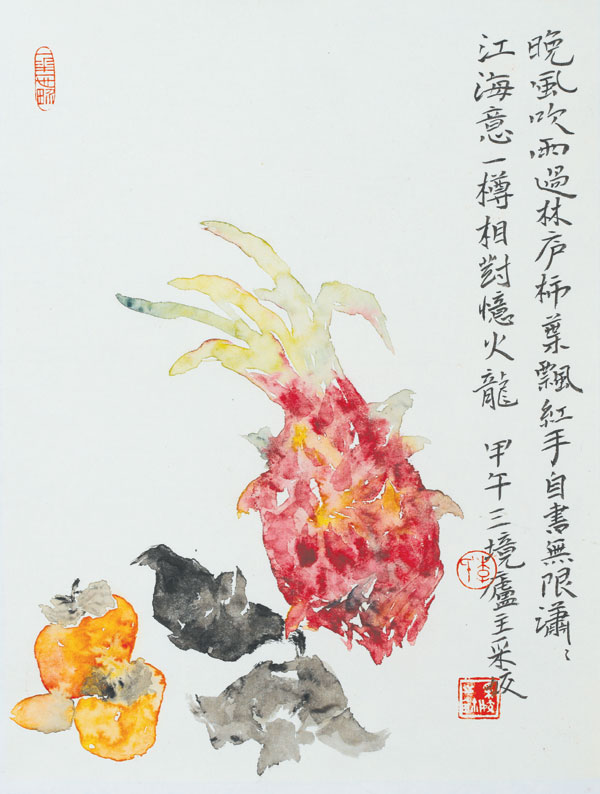 晚風吹雨過林庐柿葉飄紅手自書無限瀟〻
江海意一樽相對憶火龍 甲午三境廬主采坂